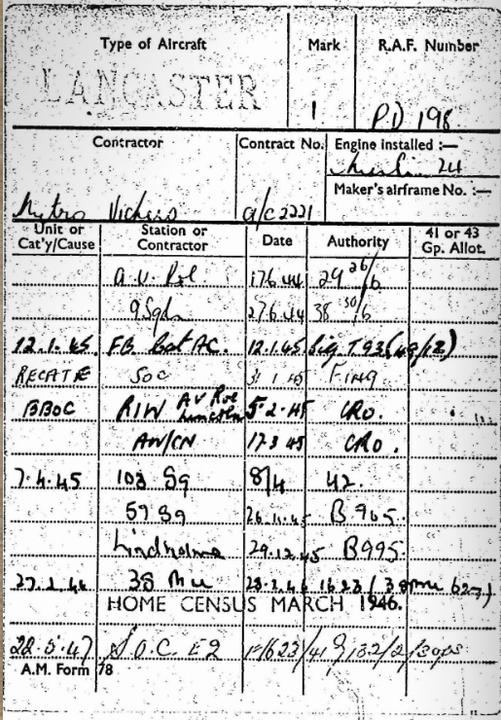 Type of Aircraft Mark R.A.F. Number
LANCASTER 1 PD 198
Contractor Contract No. Engine installed :—
Merlin 24
Maker's airframe No. :—
Metro Vickers a/c 2221
Unit or Cat'y/Cause Station or Contractor Date Authority 41 or 43 Gp. Allot.
A.V. Roe 17.6.44 29 26/6
9 Sqdn 27.6.44 38 30/6
12.1.45 FB Cat AC. 12.1.45 Sig T93 (49/12)
RECAT E SOC 31.1.45
BBOC RIW AV Roe Lincoln 5.2.45 CRO.
AW/CN 17.3.45 CRO.
7.4.45 103 Sq 8/4 42.
57 Sq 26.11.45 B965.
Lindholme 29.12.45 B995.
38 MU 1623 (38MU 627)
HOME CENSUS MARCH 1946.
22.5.47 S.O.C. E2
A.M. Form 78